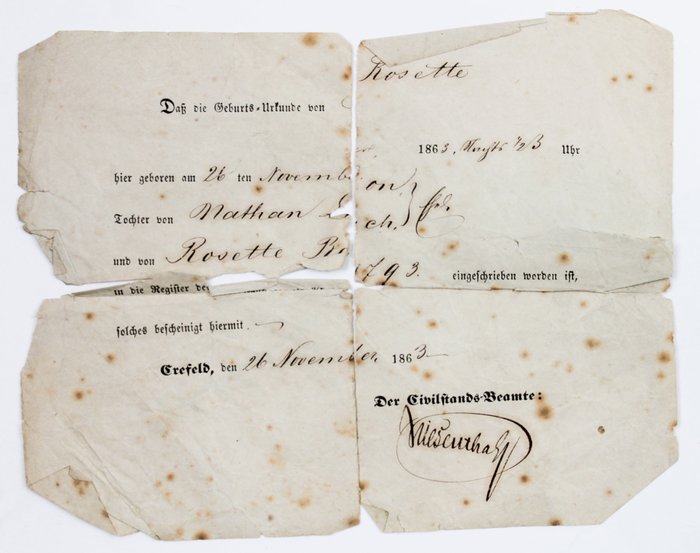 Rosette
Daß die Geburts-Urkunde von
hier geboren am 26 ten November 1863, Nachts ½3 Uhr
Tochter von Nathan
und von Rosette
in die Register der 793. eingeschrieben worden ist,
solches bescheinigt hiermit.
Crefeld, den 26 November 1863
Der Civilstands-Beamte: